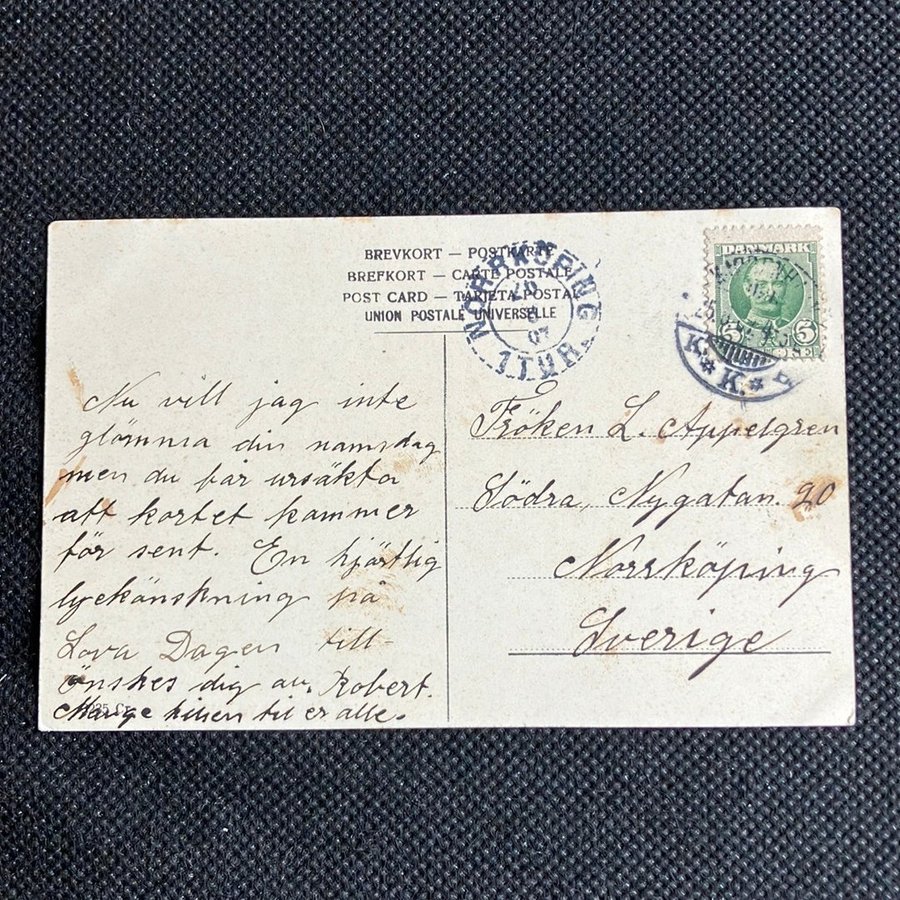 BREVKORT — POSTKARTE
BREFKORT — CARTE POSTALE
POST CARD — TARJETA POSTAL
UNION POSTALE UNIVERSELLE
NORRKÖPING
07
1 TUR
DANMARK
5 5
K. K. B
Nu vill jag inte
glömma din namsdag
men du får ursäkta
att kortet kommer
för sent. En hjärtlig
lyckönskning på
Lova Dagen till-
önskes dig av. Robert.
Mange hilsen til er alle.
Fröken L. Appelgren
Södra, Nygatan. 20
Norrköping
Sverige